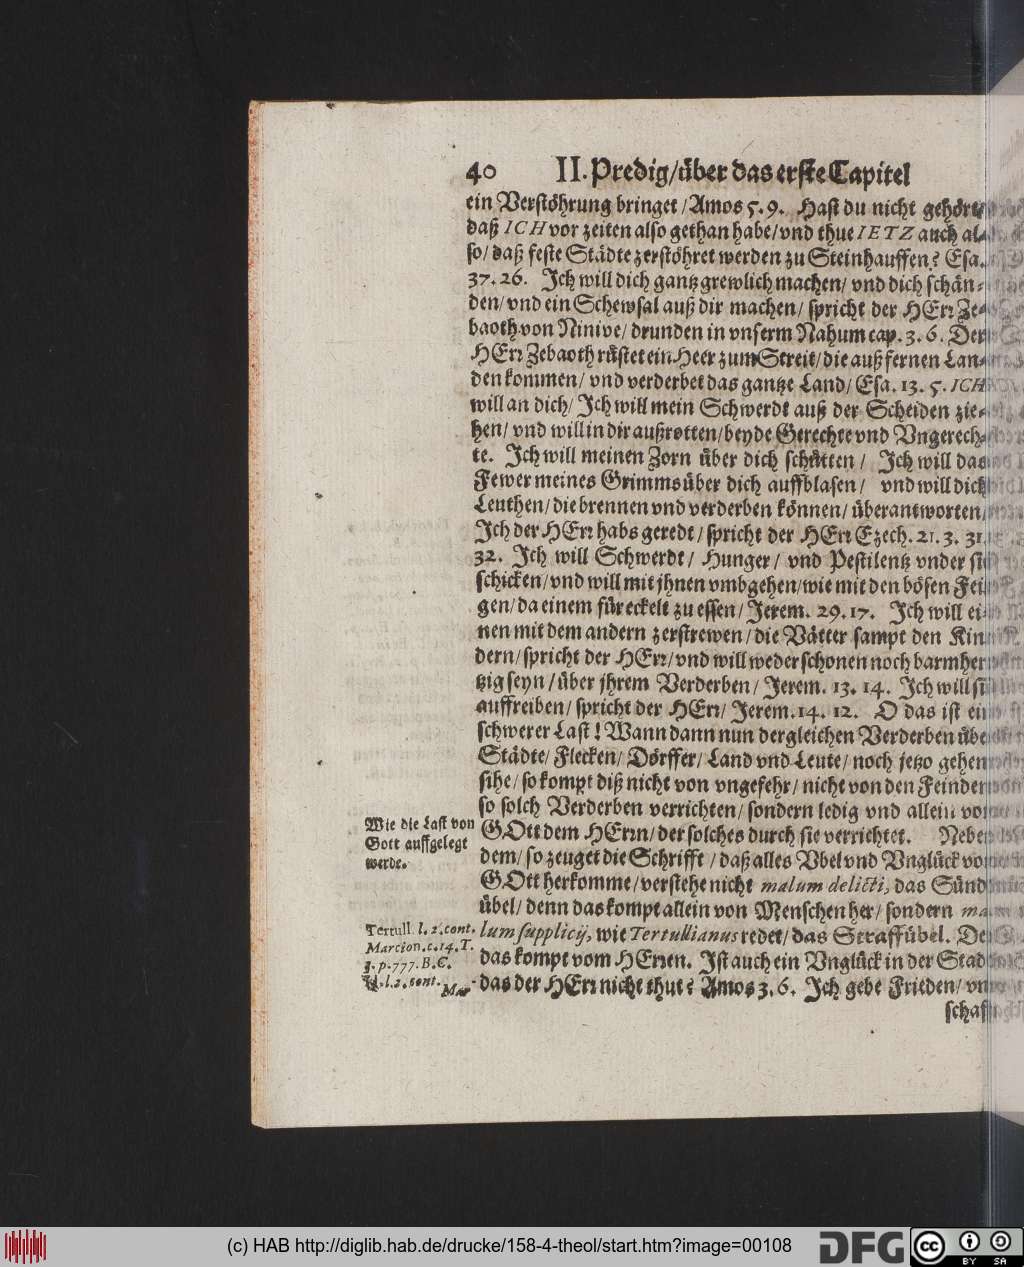 40 II. Predig/über das erste Capitel
ein Verstöhrung bringet/Amos 5.9. Hast du nicht gehört/
daß ICH vor zeiten also gethan habe/vnd thue IETZ auch al-
so/daß feste Städte zerstöhret werden zu Steinhauffen? Esa.
37.26. Ich will dich gantz grewlich machen/vnd dich schän-
den/vnd ein Schewsal auß dir machen/spricht der HErr Ze-
baoth von Ninive/drunden in vnserm Nahum cap.3.6. Der
HErr Zebaoth rüstet ein Heer zum Streit/die auß fernen Lan-
den kommen/vnd verderbet das gantze Land/Esa.13.5. ICH
will an dich/Ich will mein Schwerdt auß der Scheiden zie-
hen/vnd will in dir außrotten/beyde Gerechte vnd Vngerech-
te. Ich will meinen Zorn über dich schütten/ Ich will das
Fewer meines Grimms über dich auffblasen/ vnd will dich
Leuthen/die brennen vnd verderben können/überantworten/
Ich der HErr habs geredt/spricht der HErr Ezech.21.3.31.
32. Ich will Schwerdt/Hunger/vnd Pestilentz vnder sie
schicken/vnd will mit jhnen vmbgehen/wie mit den bösen Fei-
gen/da einem für eckelt zu essen/Jerem. 29.17. Ich will ei-
nen mit dem andern zerstrewen/die Vätter sampt den Kin
dern/spricht der HErr/vnd will weder schonen noch barmher
tzig seyn/über jhrem Verderben/Jerem. 13. 14. Ich will si
auffreiben/spricht der HErr/Jerem.14. 12. O das ist ein
schwerer Last! Wann dann nun dergleichen Verderben übe
Städte/Flecken/Dörffer/Land vnd Leute/noch jetzo gehen
sihe/so kompt diß nicht von vngefehr/nicht von den Feinden
so solch Verderben verrichten/sondern ledig vnd allein vo
Wie die Last von
Gott auffgelegt
werde.
GOtt dem HErrn/der solches durch sie verrichtet. Nebe
dem/so zeuget die Schrifft/daß alles Vbel vnd Vnglück vo
GOtt herkomme/verstehe nicht malum delicti, das Sünd
übel/denn das kompt allein von Menschen her/sondern ma
Tertull. l.2.cont.
Marcion.c.14.T.
3.p.777.B.C.
Id.l.2.cont.
Mar-
lum supplicij, wie Tertullianus redet/das Straffübel. De
das kompt vom HErren. Ist auch ein Vnglück in der Stad
das der HErr nicht thut? Amos 3.6. Ich gebe Frieden/vn
schaf
(c) HAB http://diglib.hab.de/drucke/158-4-theol/start.htm?image=00108
DFG
cc
BY SA